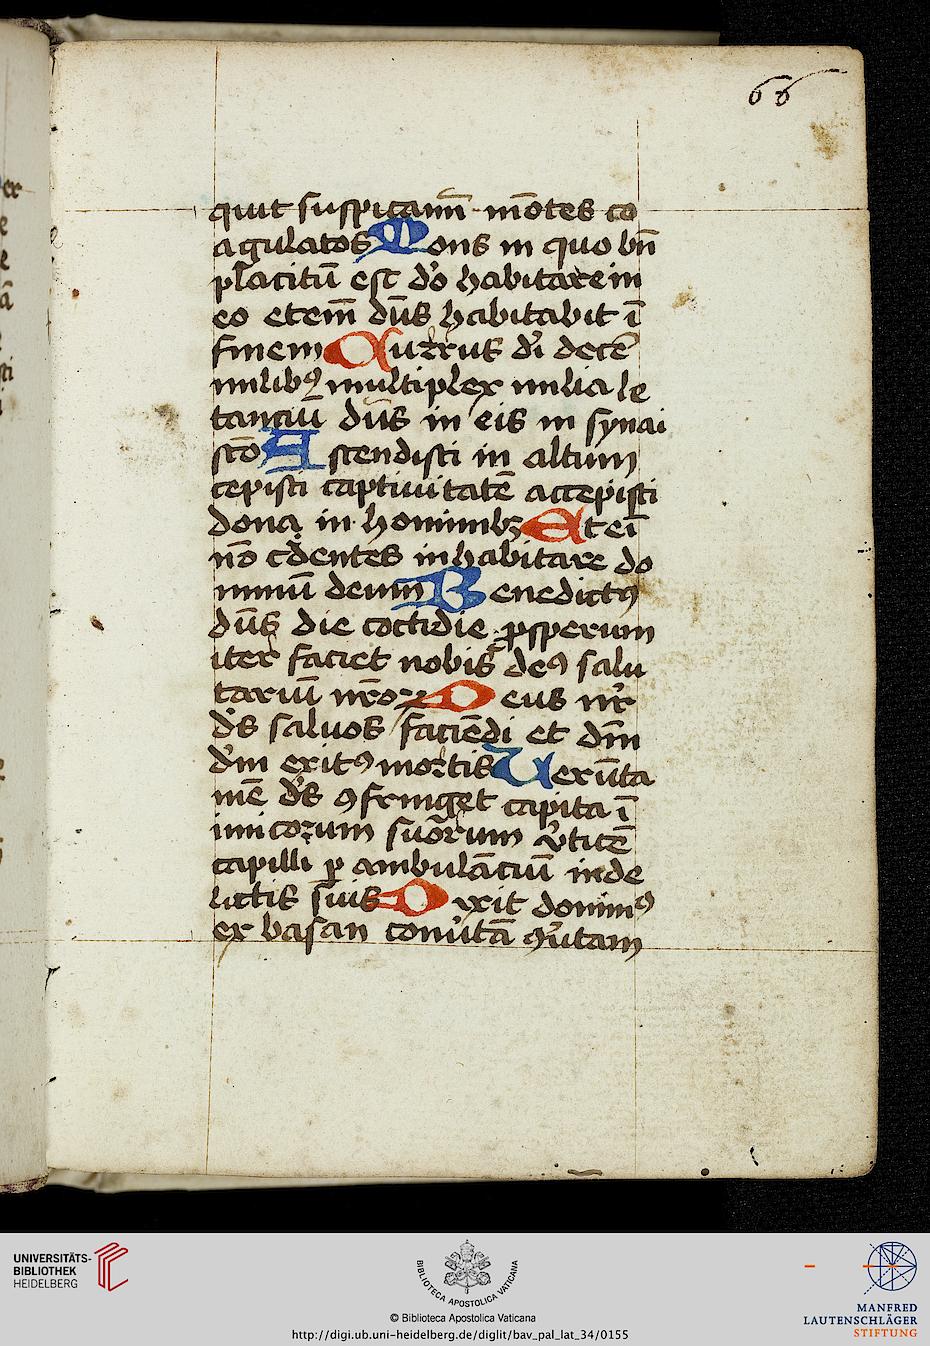 66
quit suspicamī mōtes co
agulatos Mons in quo bn̄
placitū est do habitare in
eo etem̄ dūs habitabit ī
finem Currus di decē
milibꝰ multiplex milia le
tanciū dūs in eis in synai
scō Ascendisti in altum
cepisti captiuitatē accepisti
dona in hominibꝫ Eteī
nō cdentes inhabitare do
minū deum Benedictꝰ
dūs die coctidie ꝓsperum
iter faciet nobis deꝰ salu
tariū nr̄oꝝ Deus nr̄
ds saluos faciēdi et dn̄i
dn̄i exitꝰ mortis Uerūta
mē ds ꝯfringet capita ī
imicorum suorum vticē
capilli ꝑ ambulāciū in de
lictis suis Dixit dominꝰ
ex basan conutā ꝯutam
UNIVERSITÄTS-
BIBLIOTHEK
HEIDELBERG
BIBLIOTECA APOSTOLICA VATICANA
© Biblioteca Apostolica Vaticana
http://digi.ub.uni-heidelberg.de/diglit/bav_pal_lat_34/0155
MANFRED
LAUTENSCHLÄGER
STIFTUNG